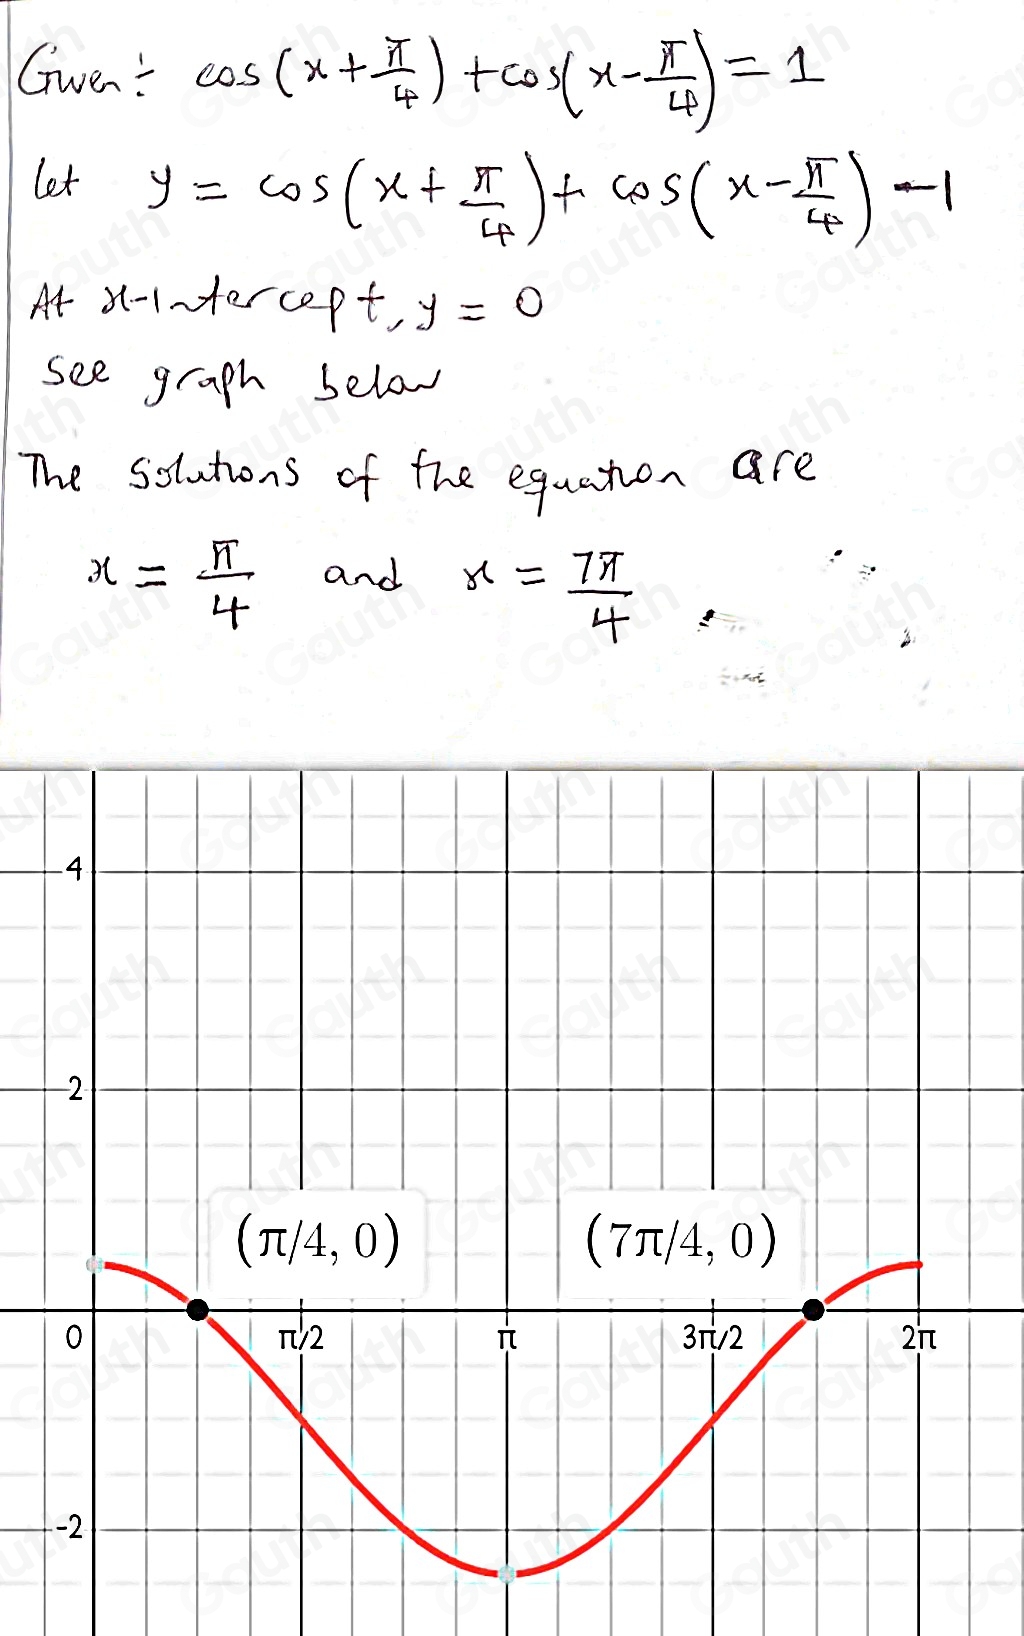 Given ÷ cos(x+π/4)+cos(x-π/4)=1
let y = cos(x+π/4)+cos(x-π/4)-1
At x-intercept, y = 0
See graph below
The Solutions of the equation are
x = π/4 and x = 7π/4
4
2
(π/4, 0) (7π/4, 0)
0 π/2 π 3π/2 2π
-2
Gauth